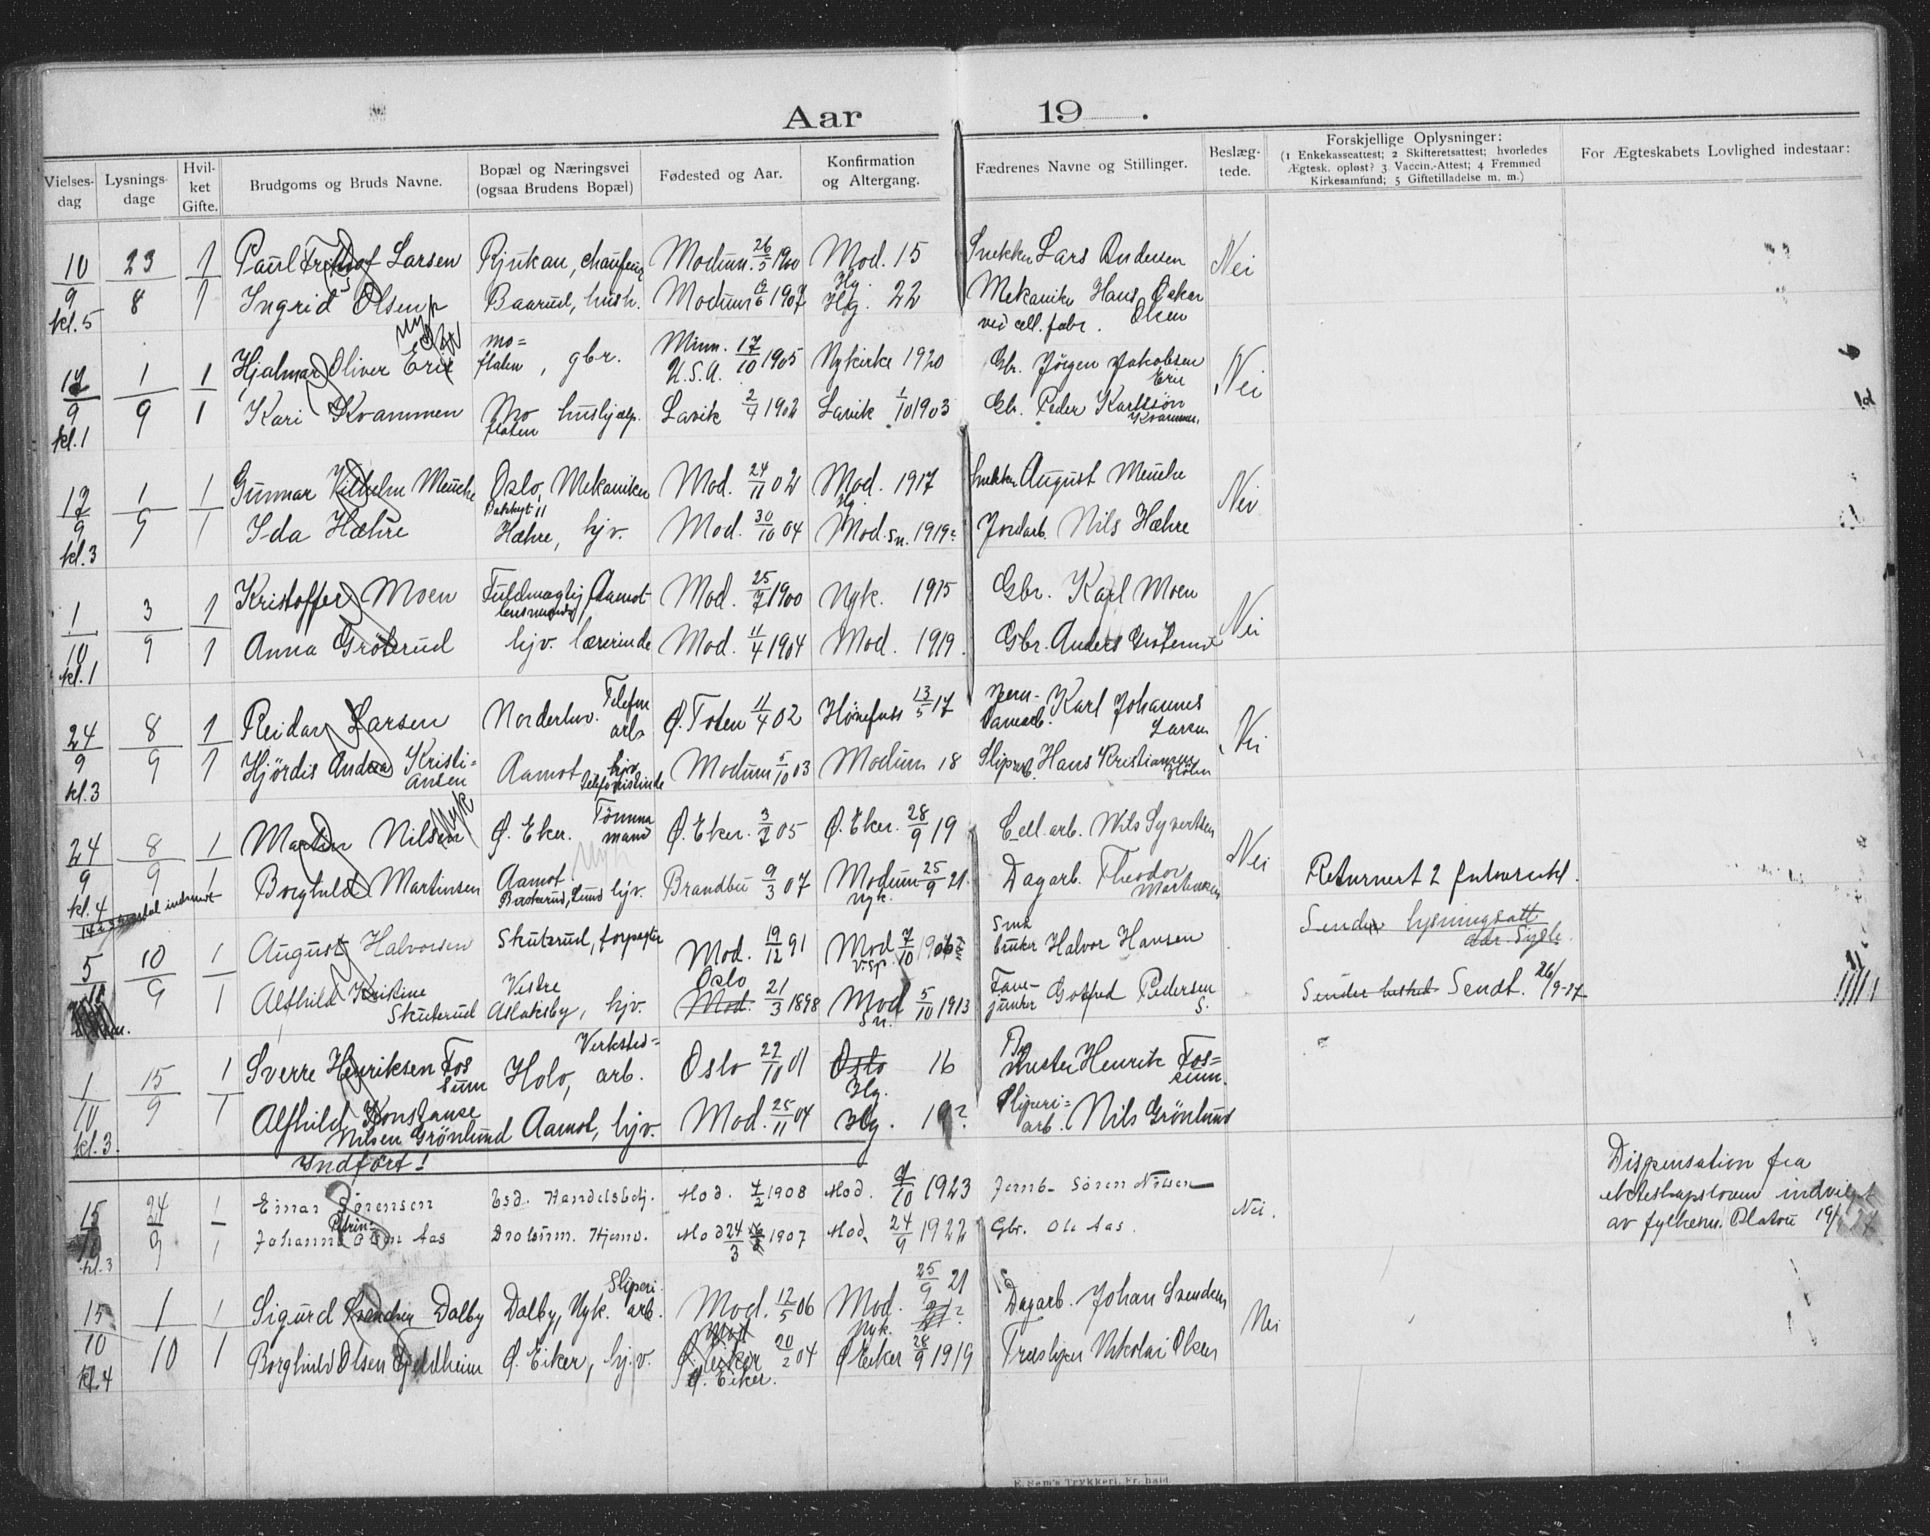 Aar 19 .
Vielses-dag Lysnings-dage Hvil-ket Gifte. Brudgoms og Bruds Navne. Bopæl og Næringsvei (ogsaa Brudens Bopæl) Fødested og Aar. Konfirmation og Altergang. Fædrenes Navne og Stillinger. Beslæg-tede. Forskjellige Oplysninger: (1 Enkekasseattest; 2 Skifteretsattest; hvorledes Ægtesk. opløst? 3 Vaccin.-Attest; 4 Fremmed Kirkesamfund; 5 Giftetilladelse m. m.) For Ægteskabets Lovlighed indestaar:
10 23 1 Paul Larsen Rjukan, chauffeur Modum 26/5 1900 Mod. 15 Snekker Lars Andersen Nei
9 8 1 Ingrid Olsen Baarud, hush. Modum 1907 Hg. 22 Mekaniker Hans Oskar Olsen
kl. 5 ved cell. fabr.
17 1 1 Hjalmar Oliver Erie Moflaten, gbr. Minn. U.S.A. 17/10 1905 Nykirke 1920 Gbr. Jörgen Jakobsen Erie Nei
9 9 1 Kari Kvammen Moflaten hushjælp. Lavik 2/4 1902 Lavik 1/10 1903 Gbr. Peder Karlsson Kvammen
kl. 1
17 1 1 Gunnar Vilhelm Menche Oslo, Mekaniker Mod. 24/11 02 Mod. Hg. 1917 Snekker August Menche Nei
9 9 1 Ida Hæhre Hæhre, hjv. Mod. 30/10 04 Mod. Sn. 1919? Jordarb. Nils Hæhre
kl. 3
1 3 1 Kristoffer Moen Fuldmægtig, Aamot Mod. 25/7 1900 Nyk. 1915 Gbr. Karl Moen Nei
10 9 1 Anna Gröterud hjv. lærerinde Mod. 11/4 1904 Mod. 1919. Gbr. Anders Gröterud
kl. 1
24 8 1 Reidar Larsen Norderhov. Telefonarb Ø. Toten 11/4 02 Hönefoss 13/5 17 Karl Johannes Larsen Nei
9 9 1 Hjördis Andrea Kristiansen Aamot hjv. telefonistinde Modum 5/10 03 Modum 18 Sliperiarb. Hans Kristiansen
kl. 3
24 8 1 Martin Nilsen Nyk Ø. Eker. Tömmermand Ø. Eker. 3/7 05 Ø. Eker. 28/9 19 Cell. arb. Nils Syvertsen Nei
9 9 1 Borghild Martinsen Aamot hjv. Brandbu 9/3 07 Modum Nyk. 25/9 21. Dagarb. Theodor Martinsen Returnert 2
kl. 4
5 10 1 August Halvorsen Skuterud, forpagter Mod. 19/12 91 Mod V.sp. 7/10 1906? Smabruker Halvor Hansen Sender lysningsatt
9 1 Alfhild Kristine Skuterud Vestre Aslaksby, hjv. Oslo Mod. 21/3 1898 Mod Sn. 5/10 1913 Gotfred Pedersen S. Sender Sendt. 26/9-27
1 15 1 Sverre Henriksen Fossum Holo, Verkstedarb. Oslo 22/10 01 Oslo Hg. 16 Henrik Fossum.
10 9 1 Alfhild Konstanse Nilsen Grönlund Aamot, hjv. Mod. 25/11 04 Hg. 19? Sliperiarb. Nils Grönlund
kl. 3.
Indført!
15 24 1 Einar Sörensen Esd. Handelsbetj. Mod. 7/2 1908 Mod. 7/10 1923 Jernb. Sören Nilsen Nei. Dispensation fra ekteskapsloven indvilget av fylkesm. Platou
10 9 1 Johanne Petrine Olsen Aas Drolsum. Hjemv. Mod 24/3 1907 Mod. 24/9 1922 Gbr. Ole Aas.
kl. 3
15 1 1 Sigurd Svendsen Dalby Dalby, Nyk. Sliperiarb. Mod. 12/5 06 Mod. Nyk. 25/9 21 Dagarb. Johan Svendsen Nei
10 10 1 Borghild Olsen Gjeldheim Ø. Eiker, hj.v. Ø. Eiker 20/2 04 Ø Eiker 28/9 1919 Træsliper Nikolai Olsen
kl. 4 Ø. Eiker.
E. Sem's Trykkeri, Fr.hald.